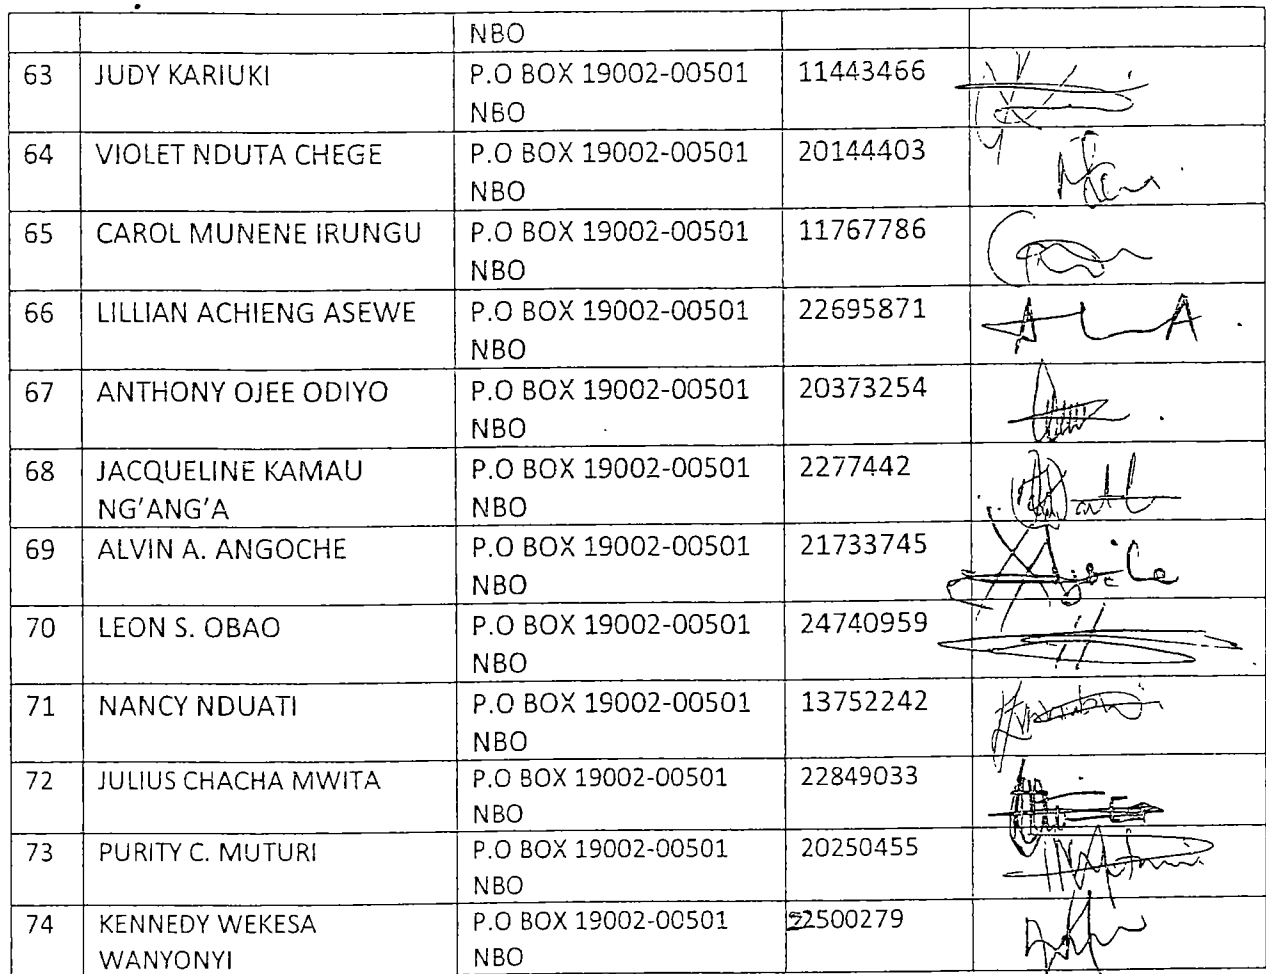 NBO
63 JUDY KARIUKI P.O BOX 19002-00501 11443466
NBO
64 VIOLET NDUTA CHEGE P.O BOX 19002-00501 20144403
NBO
65 CAROL MUNENE IRUNGU P.O BOX 19002-00501 11767786
NBO
66 LILLIAN ACHIENG ASEWE P.O BOX 19002-00501 22695871
NBO
67 ANTHONY OJEE ODIYO P.O BOX 19002-00501 20373254
NBO
68 JACQUELINE KAMAU P.O BOX 19002-00501 2277442
NG’ANG’A NBO
69 ALVIN A. ANGOCHE P.O BOX 19002-00501 21733745
NBO
70 LEON S. OBAO P.O BOX 19002-00501 24740959
NBO
71 NANCY NDUATI P.O BOX 19002-00501 13752242
NBO
72 JULIUS CHACHA MWITA P.O BOX 19002-00501 22849033
NBO
73 PURITY C. MUTURI P.O BOX 19002-00501 20250455
NBO
74 KENNEDY WEKESA P.O BOX 19002-00501 22500279
WANYONYI NBO